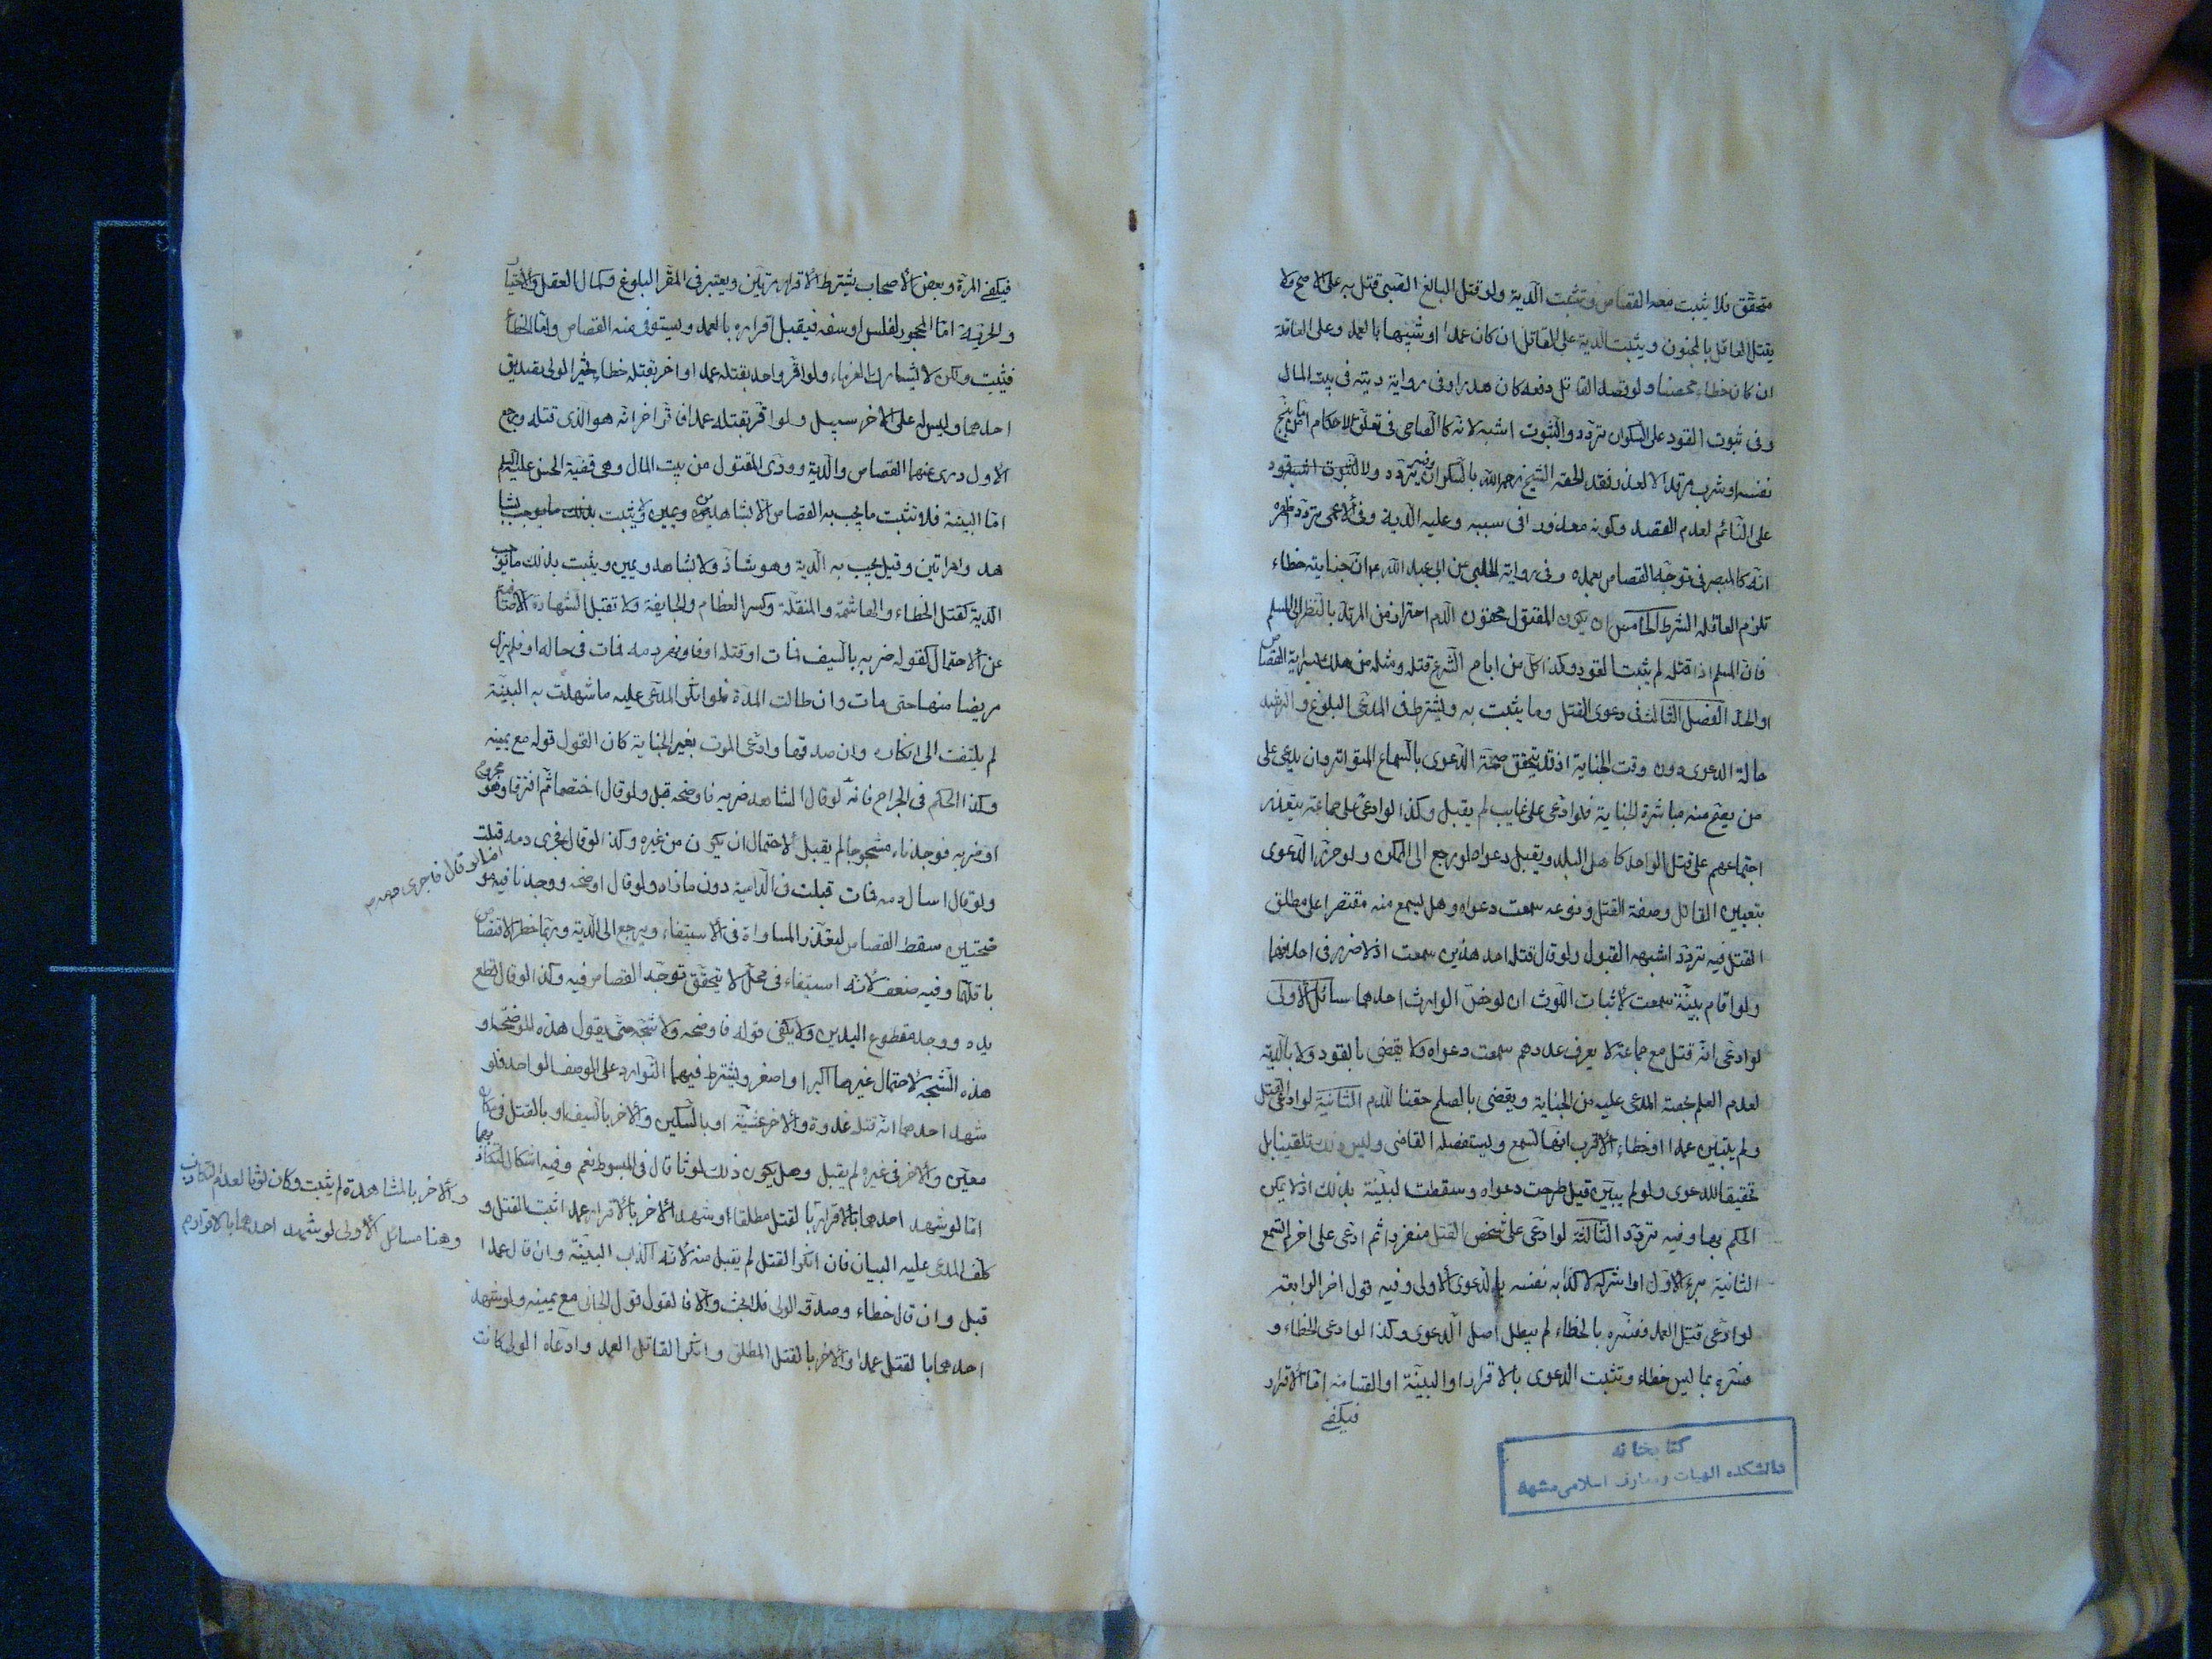 متحقق فلا يثبت معه القصاص وتثبت الدية ولو قتل البالغ الصبي قتل به على الاصح ولا
يقتل العاقل بالمجنون ويثبت الدية على القاتل ان كان عمدا او شبيها بالعمد وعلى العاقلة
ان كان خطاء محضا ولو قصد القاتل دفعه كان هدرا وفى رواية ديته فى بيت المال
وفى ثبوت القود على السكران تردد والثبوت اشبه لانه كالصاحى فى تعلق الاحكام اما من بنج
نفسه او شرب مرقدا لا لعذر فقد الحقه الشيخ رحمه الله بالسكران وفيه تردد ولا قود
على النائم لعدم القصد وكونه معذورا فى سببه وعليه الدية وفى الاعمى تردد اظهره
انه كالمبصر فى توجه القصاص بعمده وفى رواية الحلبى عن ابى عبد الله ع ان جنايته خطاء
تلزم العاقله الشرط الخامس ان يكون المقتول محقون الدم احترازا من المرتد بالنظر الى المسلم
فان المسلم اذا قتله لم يثبت القود وكذا كل من اباح الشرع قتله ومثله من هلك بسراية القصاص
او الحد الفصل الثالث فى دعوى القتل وما يثبت به ويشترط فى المدعى البلوغ والرشد
حالة الدعوى دون وقت الجناية اذ قد يتحقق صحة الدعوى بالسماع المتواتر وان يدعى على
من يصح منه مباشرة الجناية فلو ادعى على غايب لم يقبل وكذا لو ادعى على جماعة يتعذر
اجتماعهم على قتل الواحد كاهل البلد ويقبل دعواه لو رجع الى الممكن ولو حرر الدعوى
بتعيين القاتل وصفة القتل ونوعه سمعت دعواه وهل يسمع منه مقتصرا على مطلق
القتل فيه تردد اشبهه القبول ولو قال قتله احد هذين سمعت اذ لا ضرر فى احلافهما
ولو اقام بينة سمعت لاثبات اللوث ان لو خص الوارث احدهما مسائل الاولى
لو ادعى انه قتل مع جماعة لا يعرف عددهم سمعت دعواه ولا يقضى بالقود ولا بالدية
لعدم العلم بحصة المدعى عليه من الجناية ويقضى بالصلح حقنا للدم الثانية لو ادعى القتل
ولم يبين عمدا او خطاء الاقرب انها تسمع ويستفصله القاضى وليس ذلك تلقينا بل
تحقيقا للدعوى ولو لم يبين قيل طرحت دعواه وسقطت البينة بذلك اذ لا يمكن
الحكم بها وفيه تردد الثالثة لو ادعى على شخص القتل منفردا ثم ادعى على اخر لم تسمع
الثانية برء الاول او اشركه لاكذابه نفسه بالدعوى الاولى وفيه قول اخر الرابعة
لو ادعى قتل العمد ففسره بالخطاء لم يبطل اصل الدعوى وكذا لو ادعى الخطاء و
فسره بما ليس خطاء وتثبت الدعوى بالاقرار او البينة او القسامة اما الاقرار
فيكفى
كتابخانه
دانشكده الهيات ومعارف اسلامى مشهد
فيكفى المرة وبعض الاصحاب يشترط الاقرار مرتين ويعتبر فى المقر البلوغ وكمال العقل والاختيار
والحرية اما المحجور لفلس او سفه فيقبل اقراره بالعمد ويستوفى منه القصاص واما الخطاء
فتثبت ولكن لا يشارك الغرماء ولو اقر واحد بقتله عمدا واخر بقتله خطاء تخير الولى تصديق
احدهما وليس له على الاخر سبيل ولو اقر بقتله عمدا فاقر اخر انه هو الذى قتله ورجع
الاول درى عنهما القصاص والدية وودى المقتول من بيت المال وهى قضية الحسن عليه السلم
اما البينة فلا تثبت ما يجب به القصاص الا بشاهدين ولا يثبت بشا
هد وامراتين وقيل يجب به الدية وهو شاذ ولا بشاهد ويمين ويثبت بذلك ما يوجب
الدية كقتل الخطاء والهاشمة والمنقلة وكسر العظام والجايفة ولا تقبل الشهادة الا صافية
عن الاحتمال كقوله ضربه بالسيف فمات او قتله او فانهر دمه فمات فى حاله او فلم يزل
مريضا منها حتى مات وان طالت المدة فلو انكر المدعى عليه ما شهدت به البينة
لم يلتفت الى انكاره وان صدقها وادعى الموت بغير الجناية كان القول قوله مع يمينه
وكذا الحكم فى الجراح فانه لو قال الشاهد ضربه فاوضحه قبل ولو قال اختصما ثم افترقا وهو مجروح
او ضربه فوجدناه مشجوجا لم يقبل لاحتمال ان يكون من غيره وكذا لو قال فجرى دمه قبلت
اما لو قال فاجرى دمه
ولو قال اسال دمه فمات قبلت فى الدامية دون ما زاد ولو قال اوضحه ووجدنا فيه مو
ضحتين سقط القصاص لتعذر المساواة فى الاستيفاء ويرجع الى الدية وربما خطر الاقتصاص
باقلهما وفيه ضعف لانه استيفاء فى محل لا يتحقق توجه القصاص فيه وكذا لو قال قطع
يده ووجد مقطوع اليدين ولا يكفى قوله فاوضحه ولا شجه حتى يقول هذه الموضحة او
هذه الشجه لاحتمال غيرها اكبر او اصغر ويشترط فيهما التوارد على الوصف الواحد فلو
شهد احدهما انه قتله غدوة والاخر عشية او بالسكين والاخر بالسيف او بالقتل فى مكان
معين والاخر فى غيره لم يقبل وهل يكون ذلك لوثا قال فى المبسوط نعم وفيه اشكال لتكاذبهما
اما لو شهد احدهما بالاقرار والاخر بالمشاهدة لم يثبت وكان لوثا لعدم التكاذب
وهنا مسائل الاولى لو شهد احدهما بالاقرار
بالقتل مطلقا او شهد الاخر بالاقرار عمدا اثبت القتل و
كلف المدعى عليه البيان فان انكر القتل لم يقبل منه لانه اكذب البينة وان قال عمدا
قبل وان قال خطاء وصدقه الولى فلا بحث والا فالقول قول الجانى مع يمينه ولو شهد
احدهما بالقتل عمدا والاخر بالقتل المطلق وانكر القاتل العمد وادعاه الولى كانت